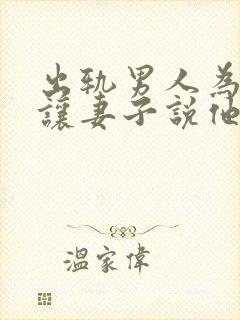 出轨男人為
讓妻子說他
溫家偉